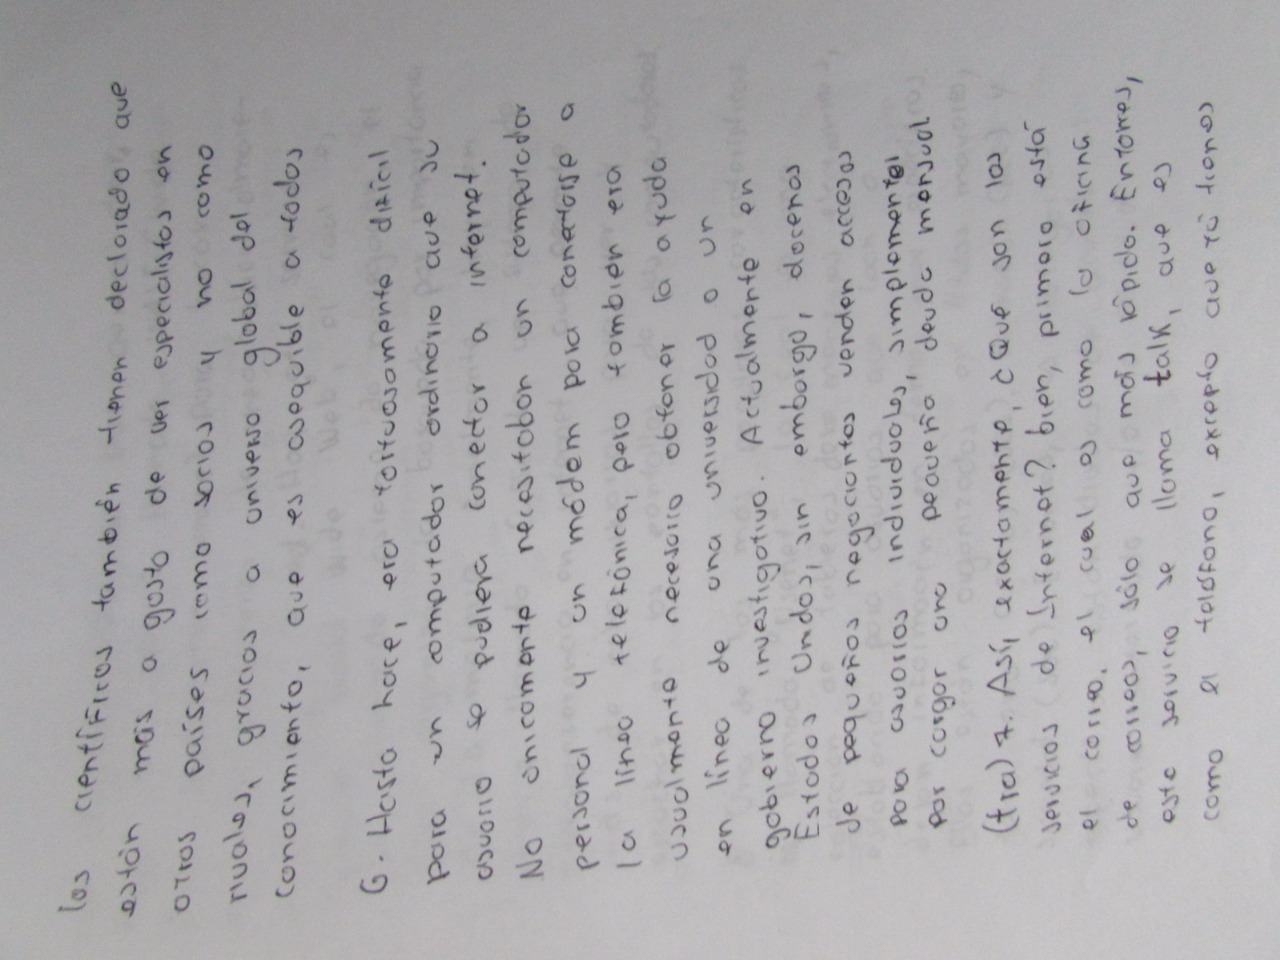 los científicos también tienen declorado, que
están más a gusto de ver especialistas en
otros países como socios y no como
rivales, gracias a universo global del
conocimiento, que es asequible a todos
6. Hasta hace, era tortuosamente difícil
para un computador ordinario que su
usuario se pudiera conector a internet.
No unicamente necesitobon un computador
personal y un módem para conectarse a
la línea telefónica, pero tombien era
usualmente necesario obtener la ayuda
en línea de una universidad o un
gobierno investigativo. Actualmente en
Estados Unidos, sin emborgo, docenas
de pequeños negociantes venden accesos
para usuarios individuales, simplemente
por corgor una pequeña deuda mensual
(tra) 7. Así, exactamente, ¿Que son los
servicios de Internet? bien, primero está
el correo, el cual es como la oficina
de correos, sólo que más rápido. Entonces,
este servicio se llama talk, que es
como el teléfono, excepto que tú tienes